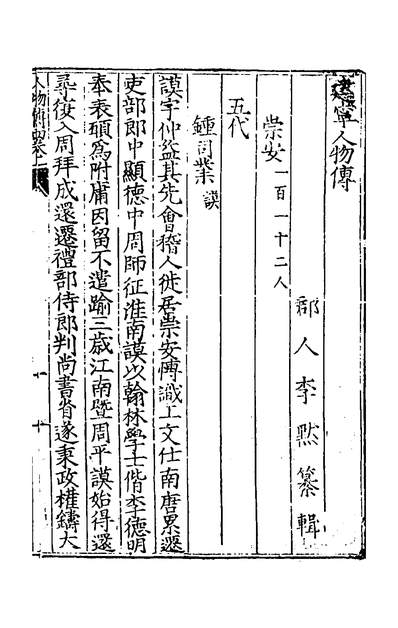 建寧人物傳
郡人李默纂輯
崇安一百一十二人
五代
鍾司業謨
謨字仲益其先會稽人徙居崇安博識工文仕南唐累遷
吏部郎中顯德中周師征淮南謨以翰林學士偕李德明
奉表碩為附庸因留不遣踰三歲江南暨周平謨始得還
尋復入周拜成還遷禮部侍郎判尚書省遂秉政榷鑄大
人物傳